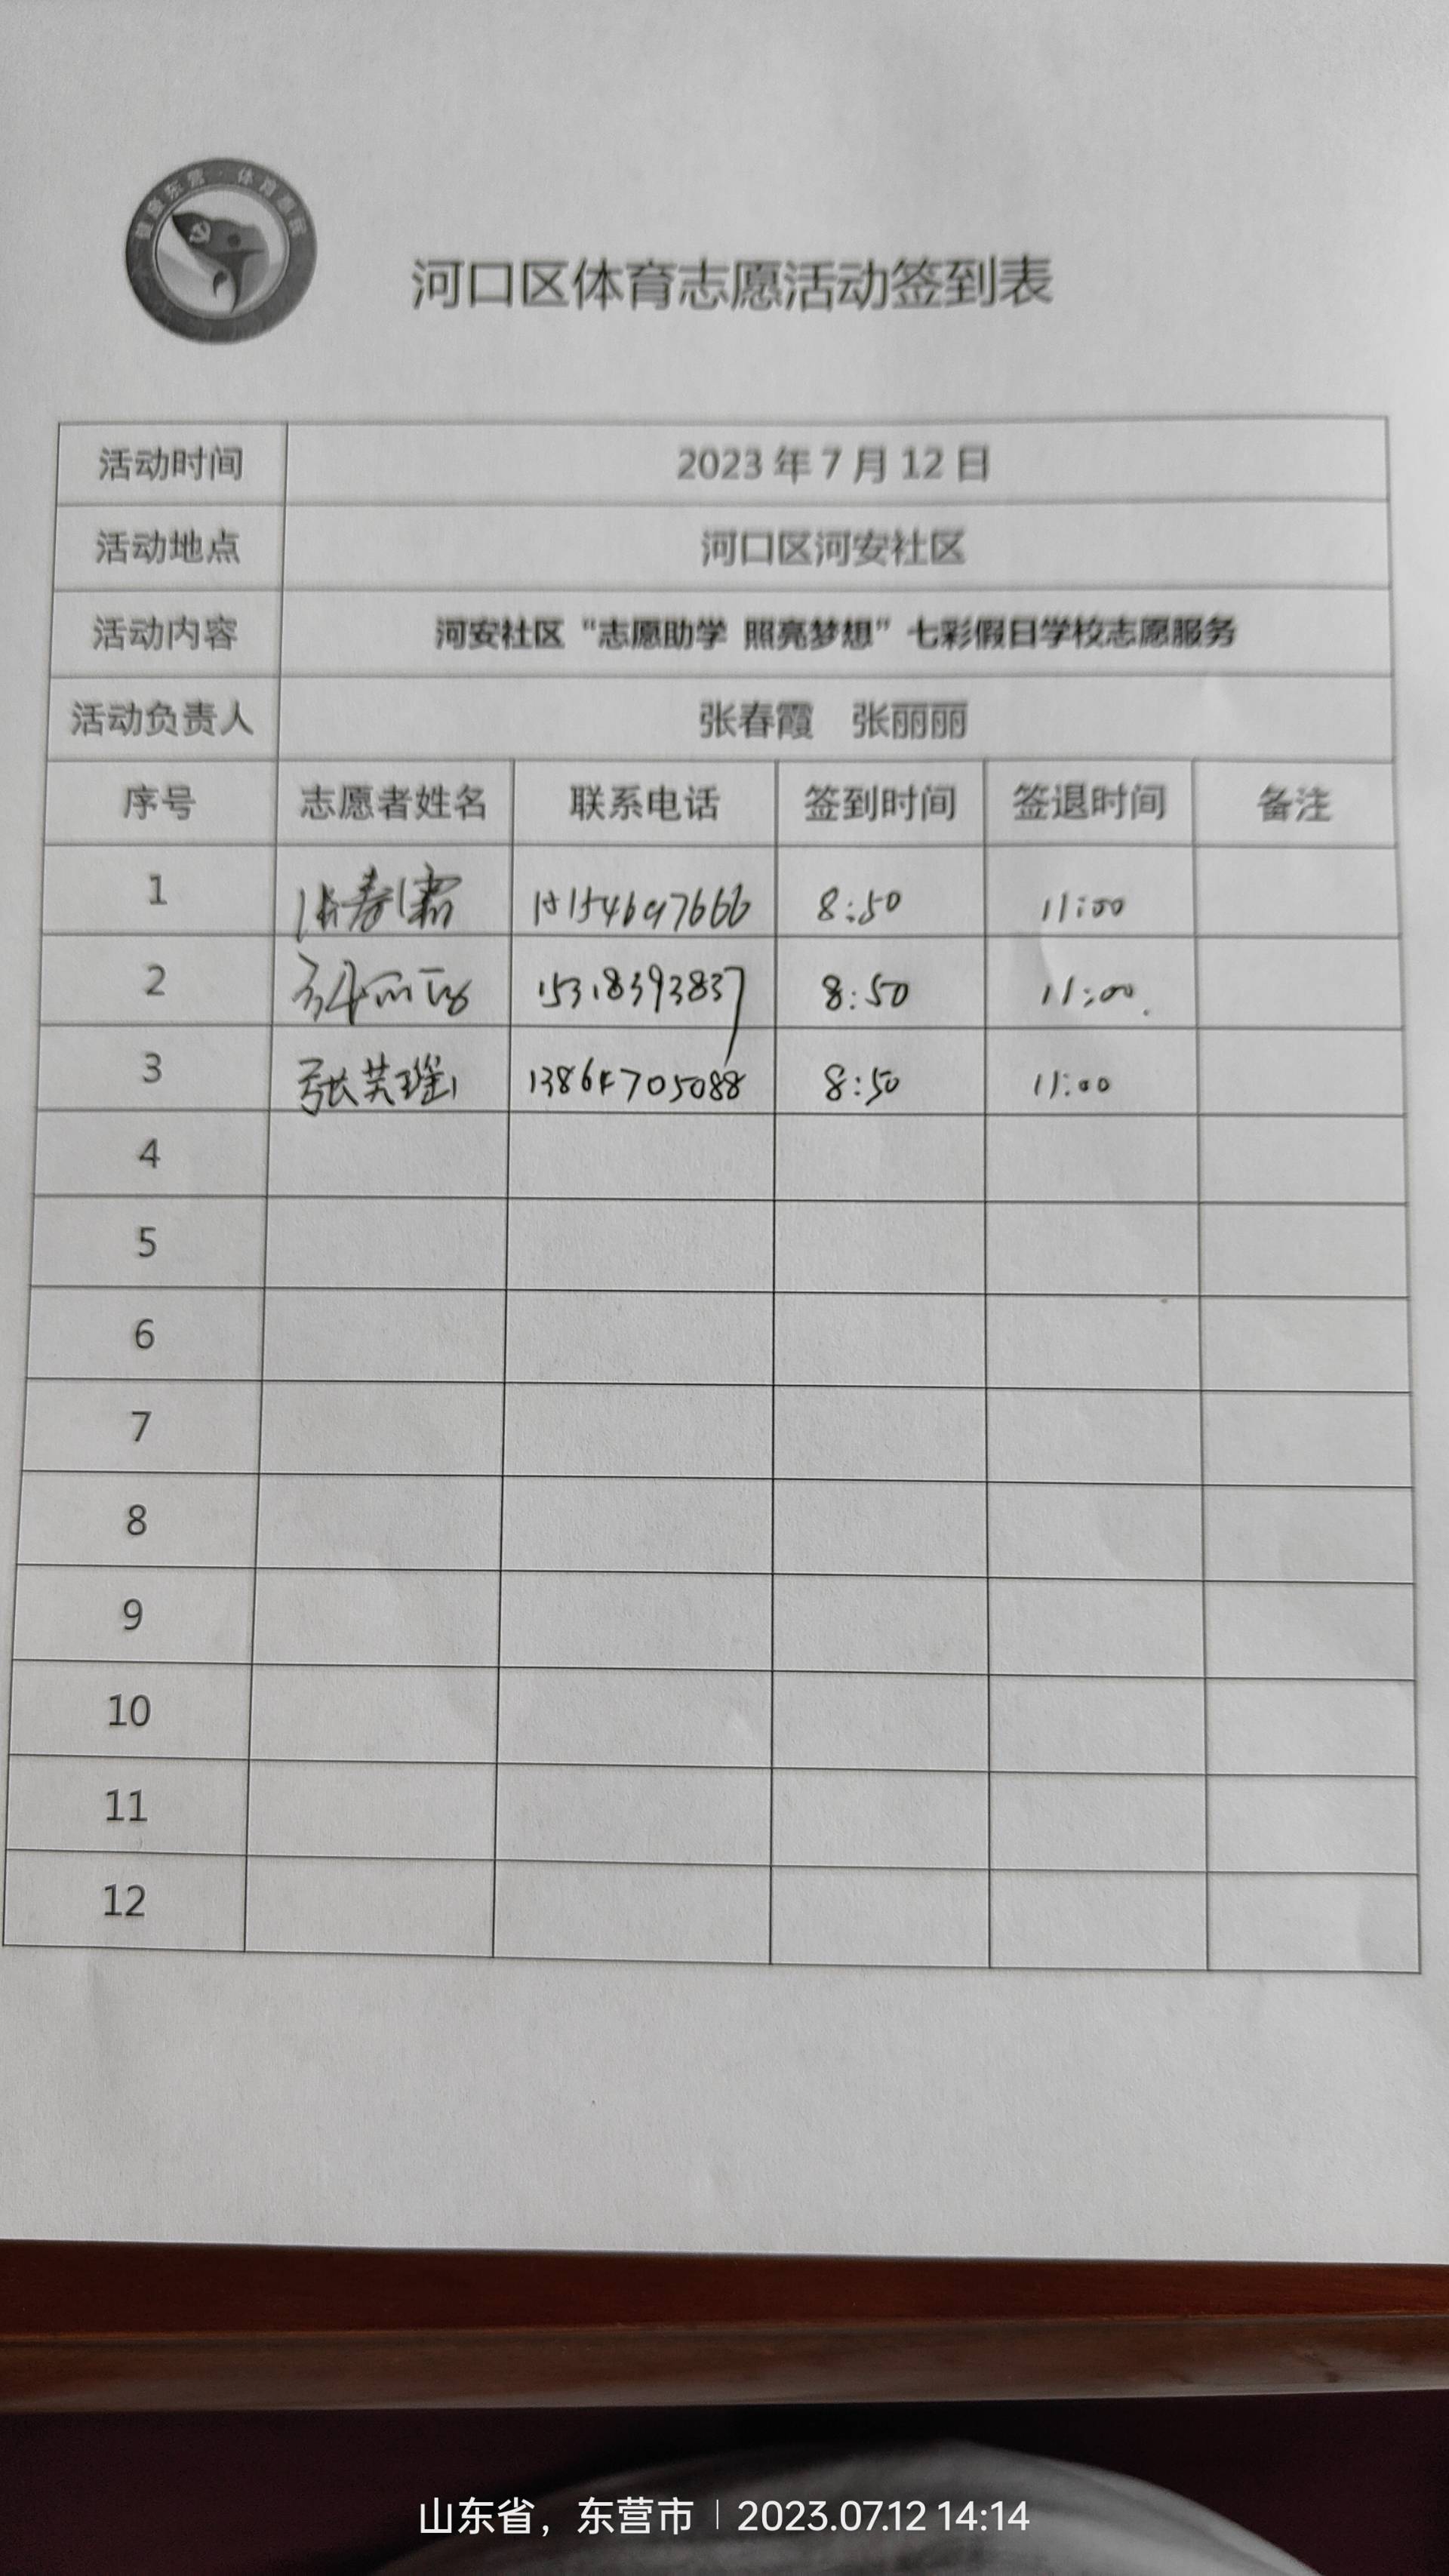 健康东营·体育惠民
河口区体育志愿活动签到表
活动时间 2023年7月12日
活动地点 河口区河安社区
活动内容 河安社区“志愿助学 照亮梦想”七彩假日学校志愿服务
活动负责人 张春霞 张丽丽
序号 志愿者姓名 联系电话 签到时间 签退时间 备注
1 张春霞 15154697666 8:50 11:00
2 张丽丽 15318393837 8:50 11:00
3 张芙瑶 13864705088 8:50 11:00
4
5
6
7
8
9
10
11
12
山东省，东营市 | 2023.07.12 14:14